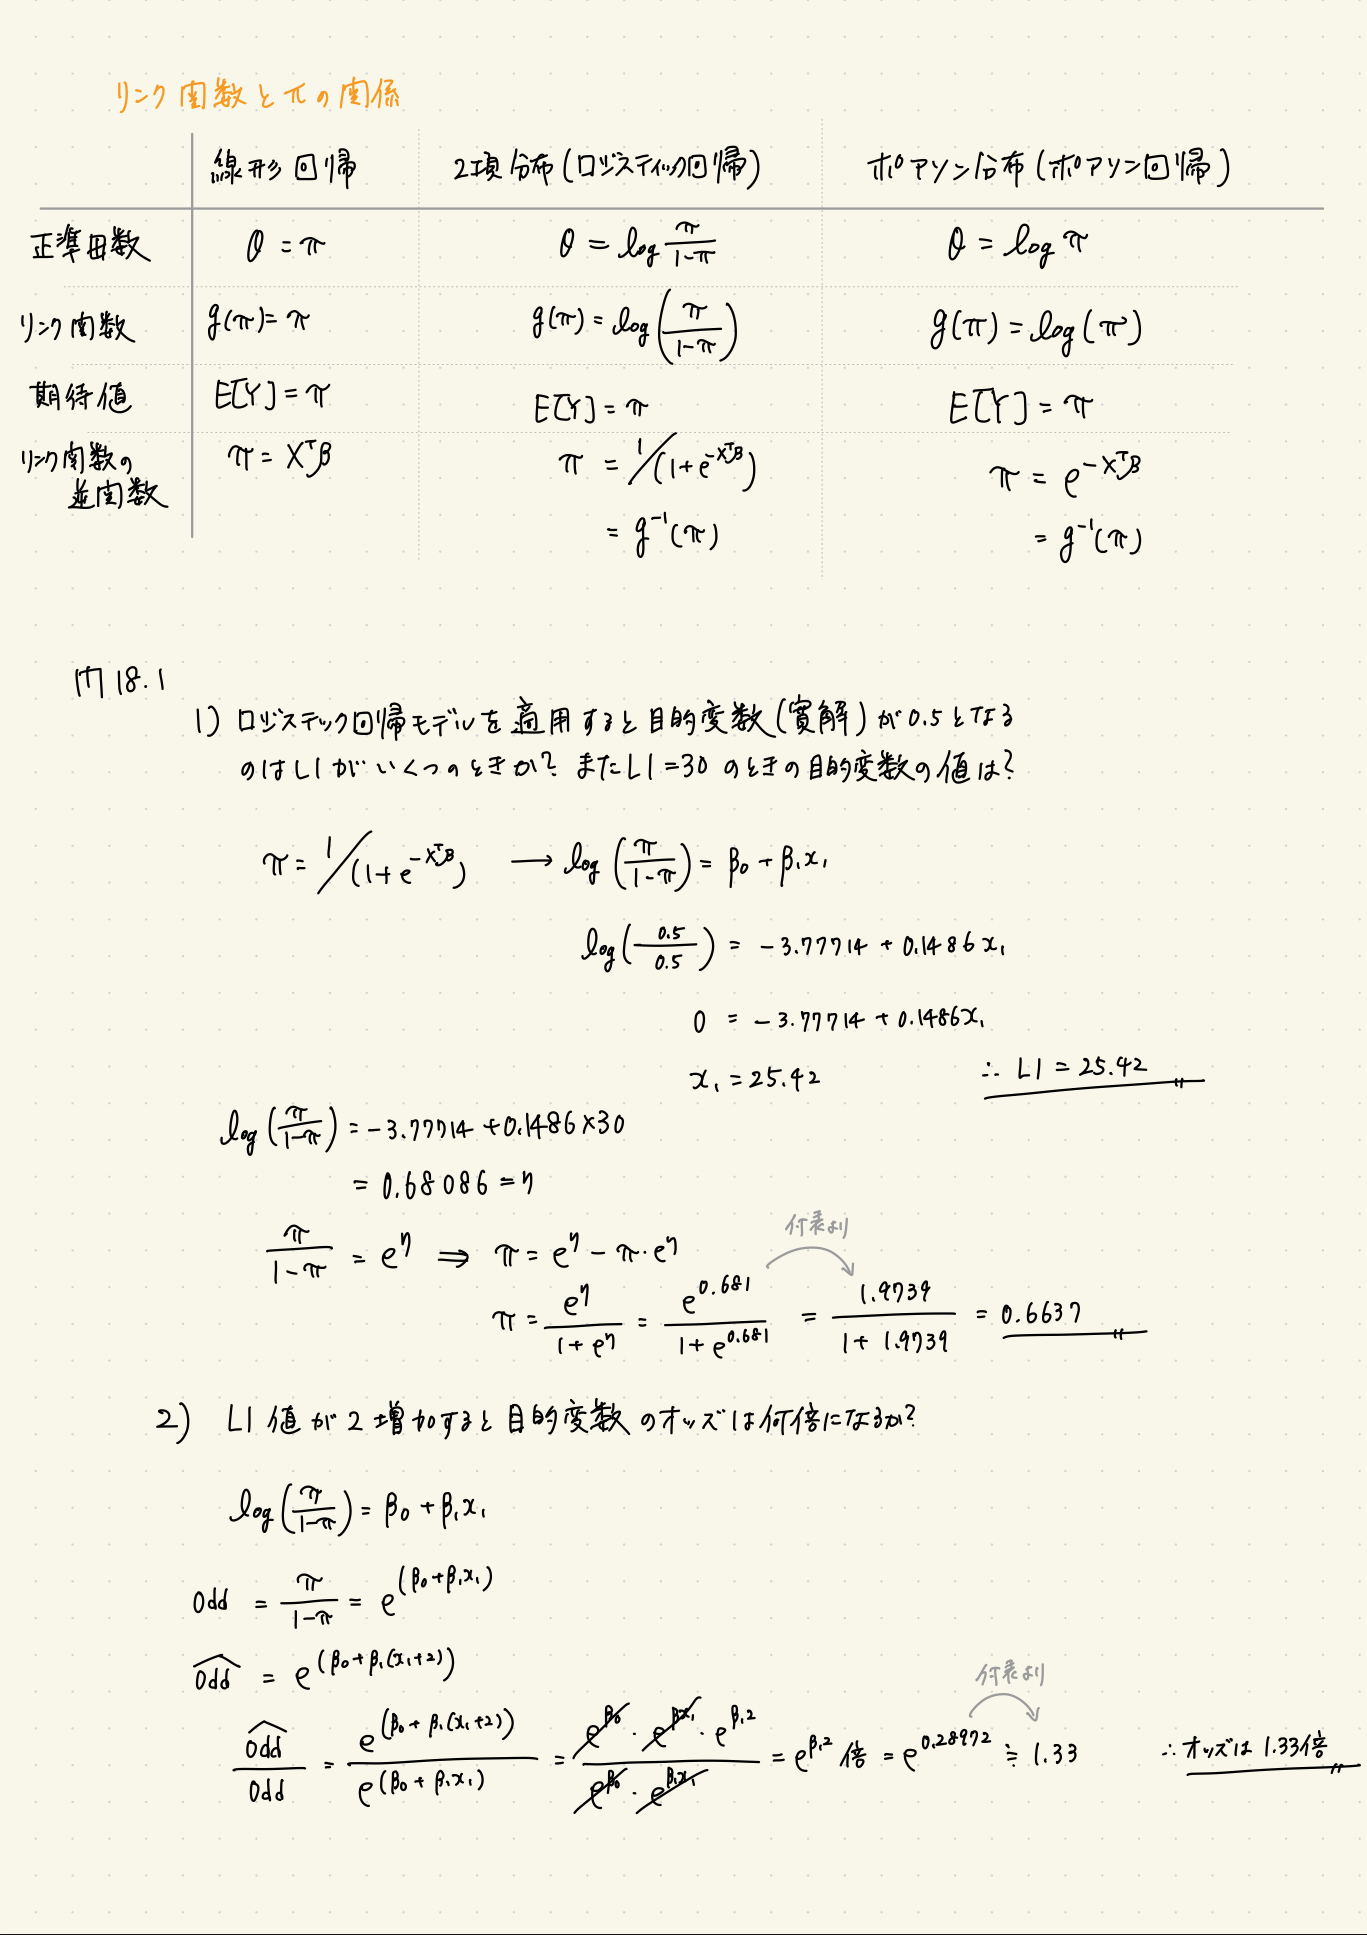 リンク関数とπの関係
線形回帰 2項分布(ロジスティック回帰) ポアソン分布(ポアソン回帰)
正準母数 θ = π θ = log π/(1-π) θ = log π
リンク関数 g(π) = π g(π) = log(π/(1-π)) g(π) = log(π)
期待値 E[Y] = π E[Y] = π E[Y] = π
リンク関数の逆関数 π = X^Tβ π = 1/(1+e^{-X^Tβ}) π = e^{-X^Tβ}
= g^{-1}(π) = g^{-1}(π)
問 18.1
1) ロジスティック回帰モデルを適用すると目的変数(寛解)が0.5となる
のはL1がいくつのときか? またL1=30のときの目的変数の値は?
π = 1/(1+e^{-X^Tβ}) → log(π/(1-π)) = β₀ + β₁x₁
log(0.5/0.5) = -3.77714 + 0.1486x₁
0 = -3.77714 + 0.1486x₁
x₁ = 25.42 ∴ L1 = 25.42
log(π/(1-π)) = -3.77714 + 0.1486×30
= 0.68086 = η
π/(1-π) = e^η ⇒ π = e^η - π·e^η
付表より
π = e^η/(1+e^η) = e^{0.681}/(1+e^{0.681}) = 1.9739/(1+1.9739) = 0.6637
2) L1値が2増加すると目的変数のオッズは何倍になるか?
log(π/(1-π)) = β₀ + β₁x₁
Odd = π/(1-π) = e^{(β₀+β₁x₁)}
\widehat{Odd} = e^{(β₀+β₁(x₁+2))}
付表より
\widehat{Odd}/Odd = e^{(β₀+β₁(x₁+2))}/e^{(β₀+β₁x₁)} = e^{β₀}·e^{β₁x₁}·e^{β₁2}/e^{β₀}·e^{β₁x₁} = e^{β₁2}倍 = e^{0.28972} ≒ 1.33 ∴ オッズは 1.33倍